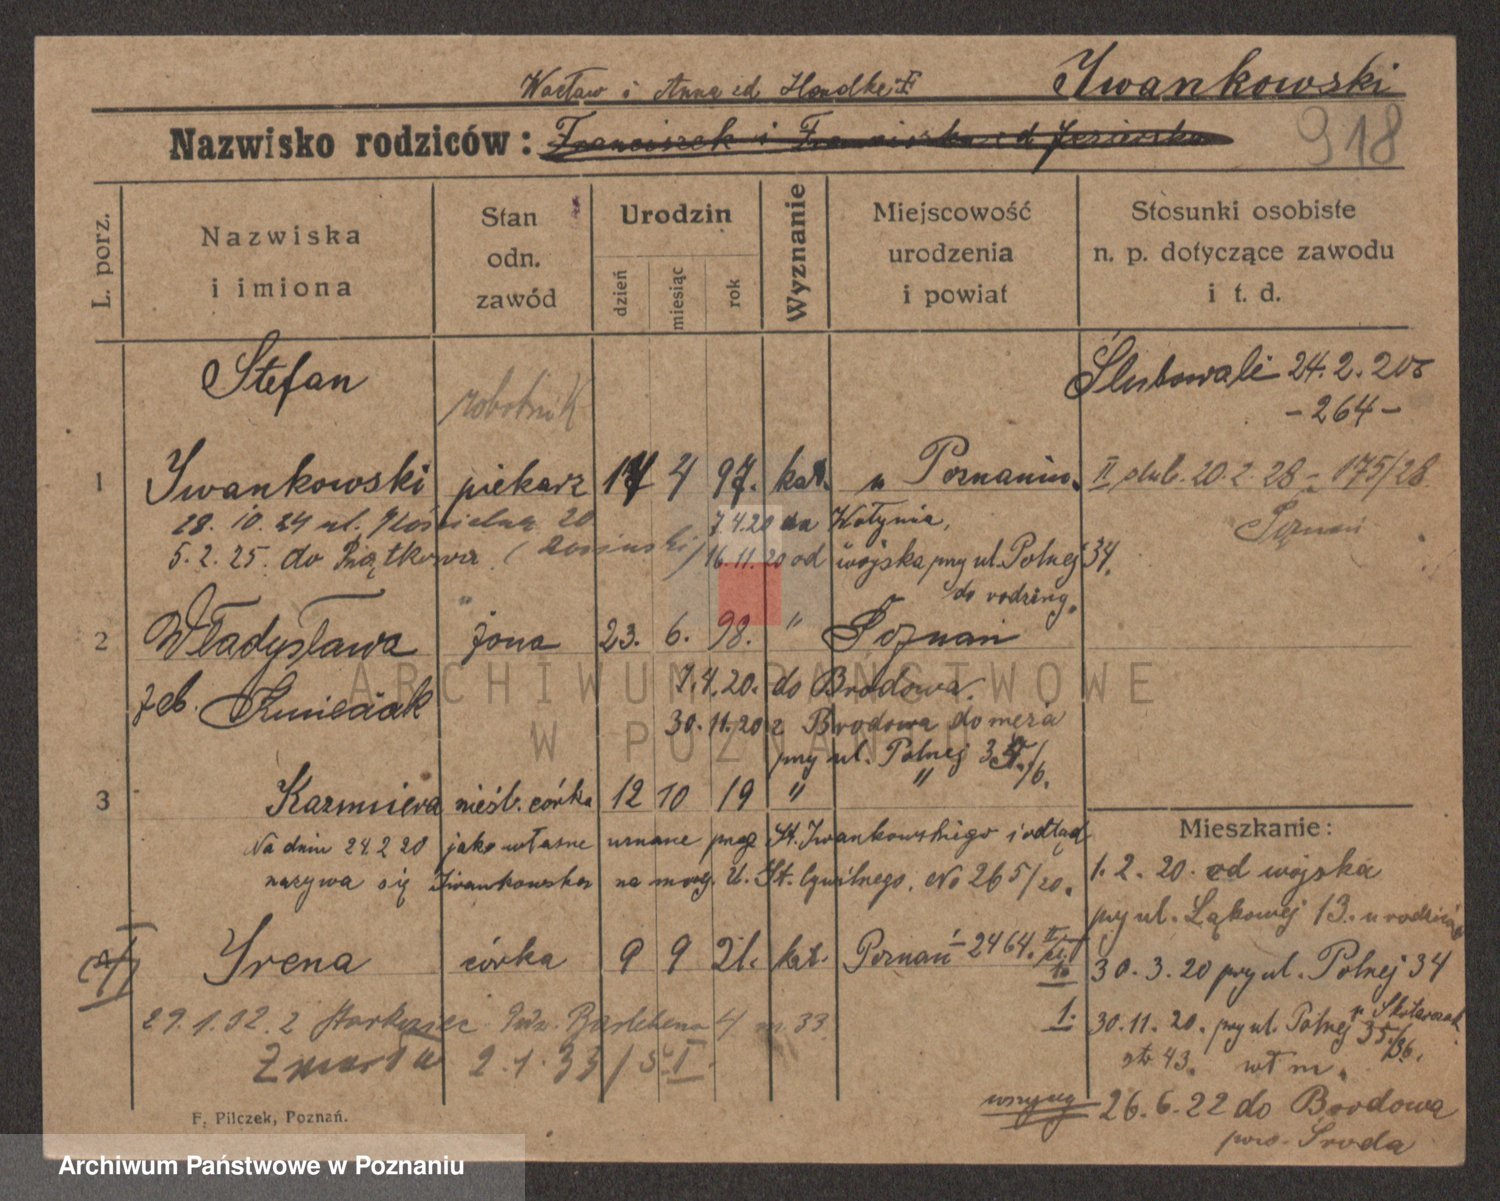 Iwankowski
Wacław i Anna zd Handke
918
Nazwisko rodziców: Franciszek i Franciszka zd Jezierska
L. porz.
Nazwiska i imiona
Stan odn. zawód
Urodzin
dzień miesiąc rok
Wyznanie
Miejscowość urodzenia i powiat
Stosunki osobiste n. p. dotyczące zawodu i t. d.
Stefan
robotnik
Ślubowali 24.2.20
- 264 -
1 Iwankowski piekarz 17 4 97. kat. w Poznaniu.
II ślub. 20.2.28 - 175/28
Poznań
28.10.24 ul. Kościelna 20 7.4.20 do Wołynia,
5.2.25. do Piątkowa 16.11.20 od wojska przy ul. Polnej 34.
do rodziny.
2 Władysława żona 23. 6. 98. " Poznań
7.4.20. do Brodowa.
zeb. Kmieciak
30.11.20 z Brodowa do męża
przy ul. Polnej
3 Kazimiera nieśl. córka 12 10 19 " "
Na dniu 24.2.20 jako własne uznane przez St. Iwankowskiego i odtąd
nazywa się Iwankowska na mocy U. St. Cywilnego. No 265/20.
Mieszkanie:
1.2.20. od wojska
przy ul. Łąkowej 13.
30.3.20 przy ul. Polnej 34
30.11.20. przy ul. Polnej 35/36.
str 43. wł m.
Irena córka 9 9 21. kat. Poznań - 2464.
29.1.32. z
1.
Zmarła 2.1.33
26.6.22 do Brodowa
pow. Środa
F. Pilczek, Poznań.
ARCHIWUM PAŃSTWOWE
W POZNANIU
Archiwum Państwowe w Poznaniu